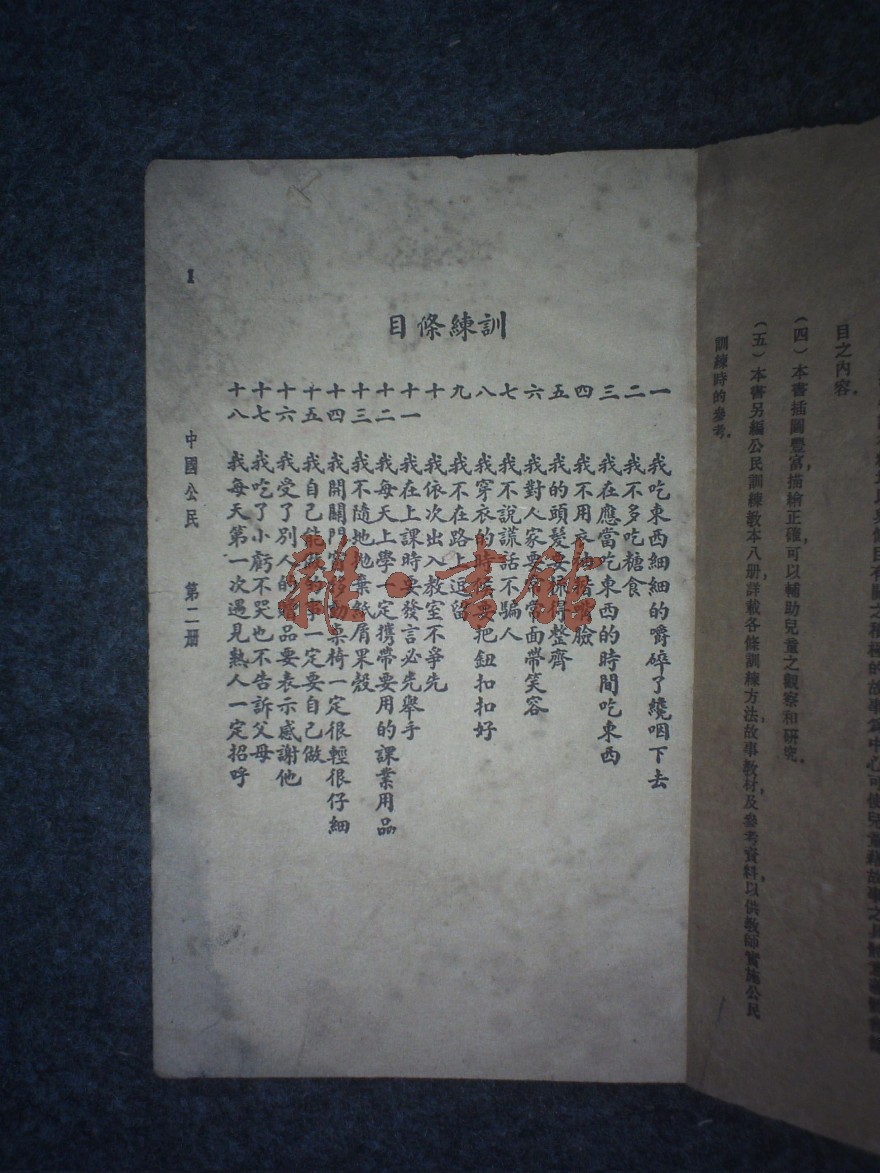 目之內容。
（四）本書插圖豐富，描繪正確，可以輔助兒童之觀察和研究。
（五）本書另編公民訓練教本八册，詳載各條訓練方法，故事教材，及參考資料，以供教師實施公民
訓練時的參考。
訓練條目
一 我吃東西細細的嚼碎了纔咽下去
二 我不多吃糖食
三 我在應當吃東西的時間吃東西
四 我不用衣袖揩嘴臉
五 我的頭髮要梳得整齊
六 我對人家要常常面帶笑容
七 我不說謊話不騙人
八 我穿衣的時候要把鈕扣扣好
九 我不在路上逗留
十 我依次出入教室不爭先
十一 我在上課時要發言必先舉手
十二 我每天上學一定攜帶要用的課業用品
十三 我不隨地拋棄紙屑果殼
十四 我開關門窗移動桌椅一定很輕很仔細
十五 我自己能做的事一定要自己做
十六 我受了別人的贈品要表示感謝他
十七 我吃了小虧不哭也不告訴父母
十八 我每天第一次遇見熟人一定招呼
中國公民 第二册
1
雜·書館